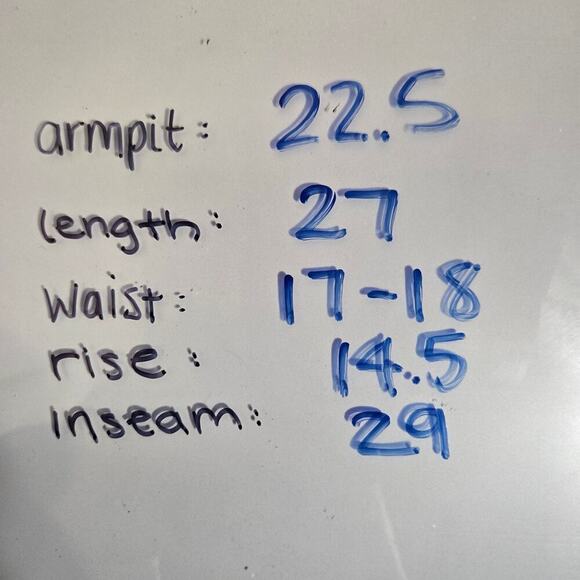 armpit: 22.5
length: 27
waist: 17-18
rise: 14.5
inseam: 29